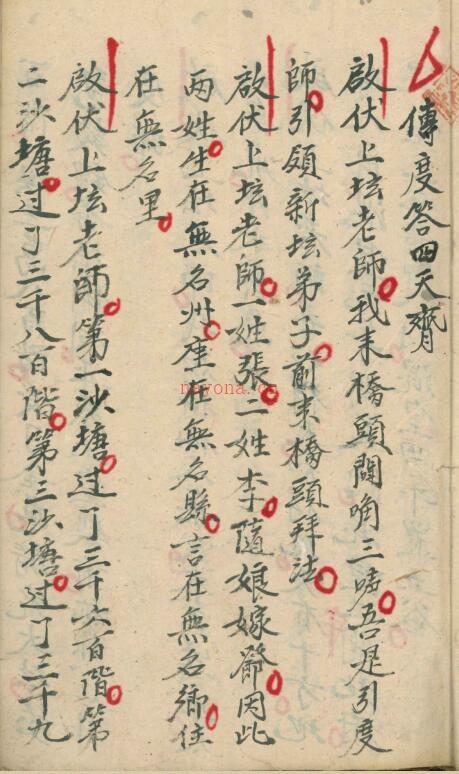 傳度答四天齊
啟伏上坛老師我来橋頭閗角三唛吾是引度
師引领新坛弟子前来橋頭拜法
啟伏上坛老師一姓張二姓李隨娘嫁爺因此
两姓生在無名州座在無名縣言在無名鄉住
在無名里
啟伏上坛老師第一沙塘过了三千六百階第
二沙塘过了三千八百階第三沙塘过了三千九
nayona.cn